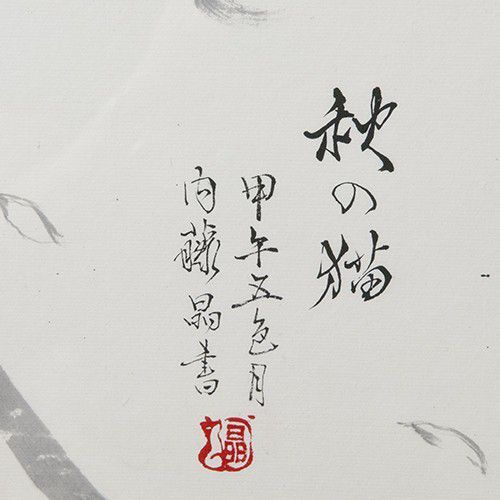 秋の猫
甲午五色月
内藤晶書
晶